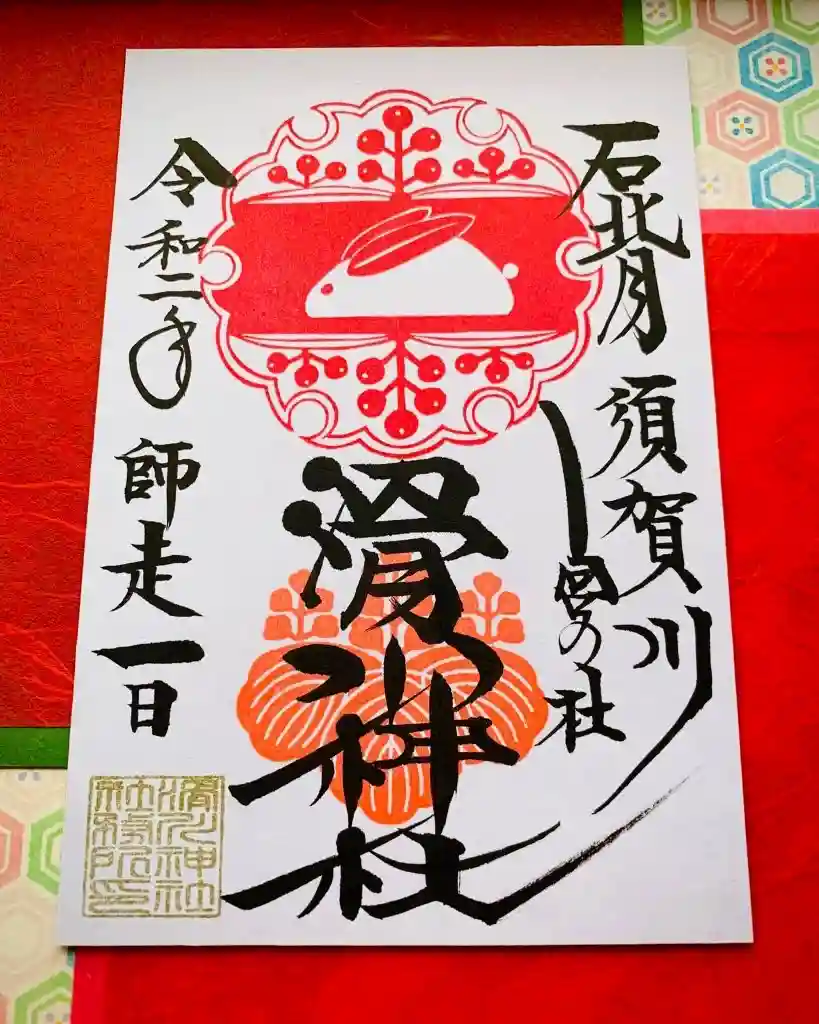 石背 須賀川
宮の社
滑川神社
令和二年 師走一日
滑川神社
社務所印